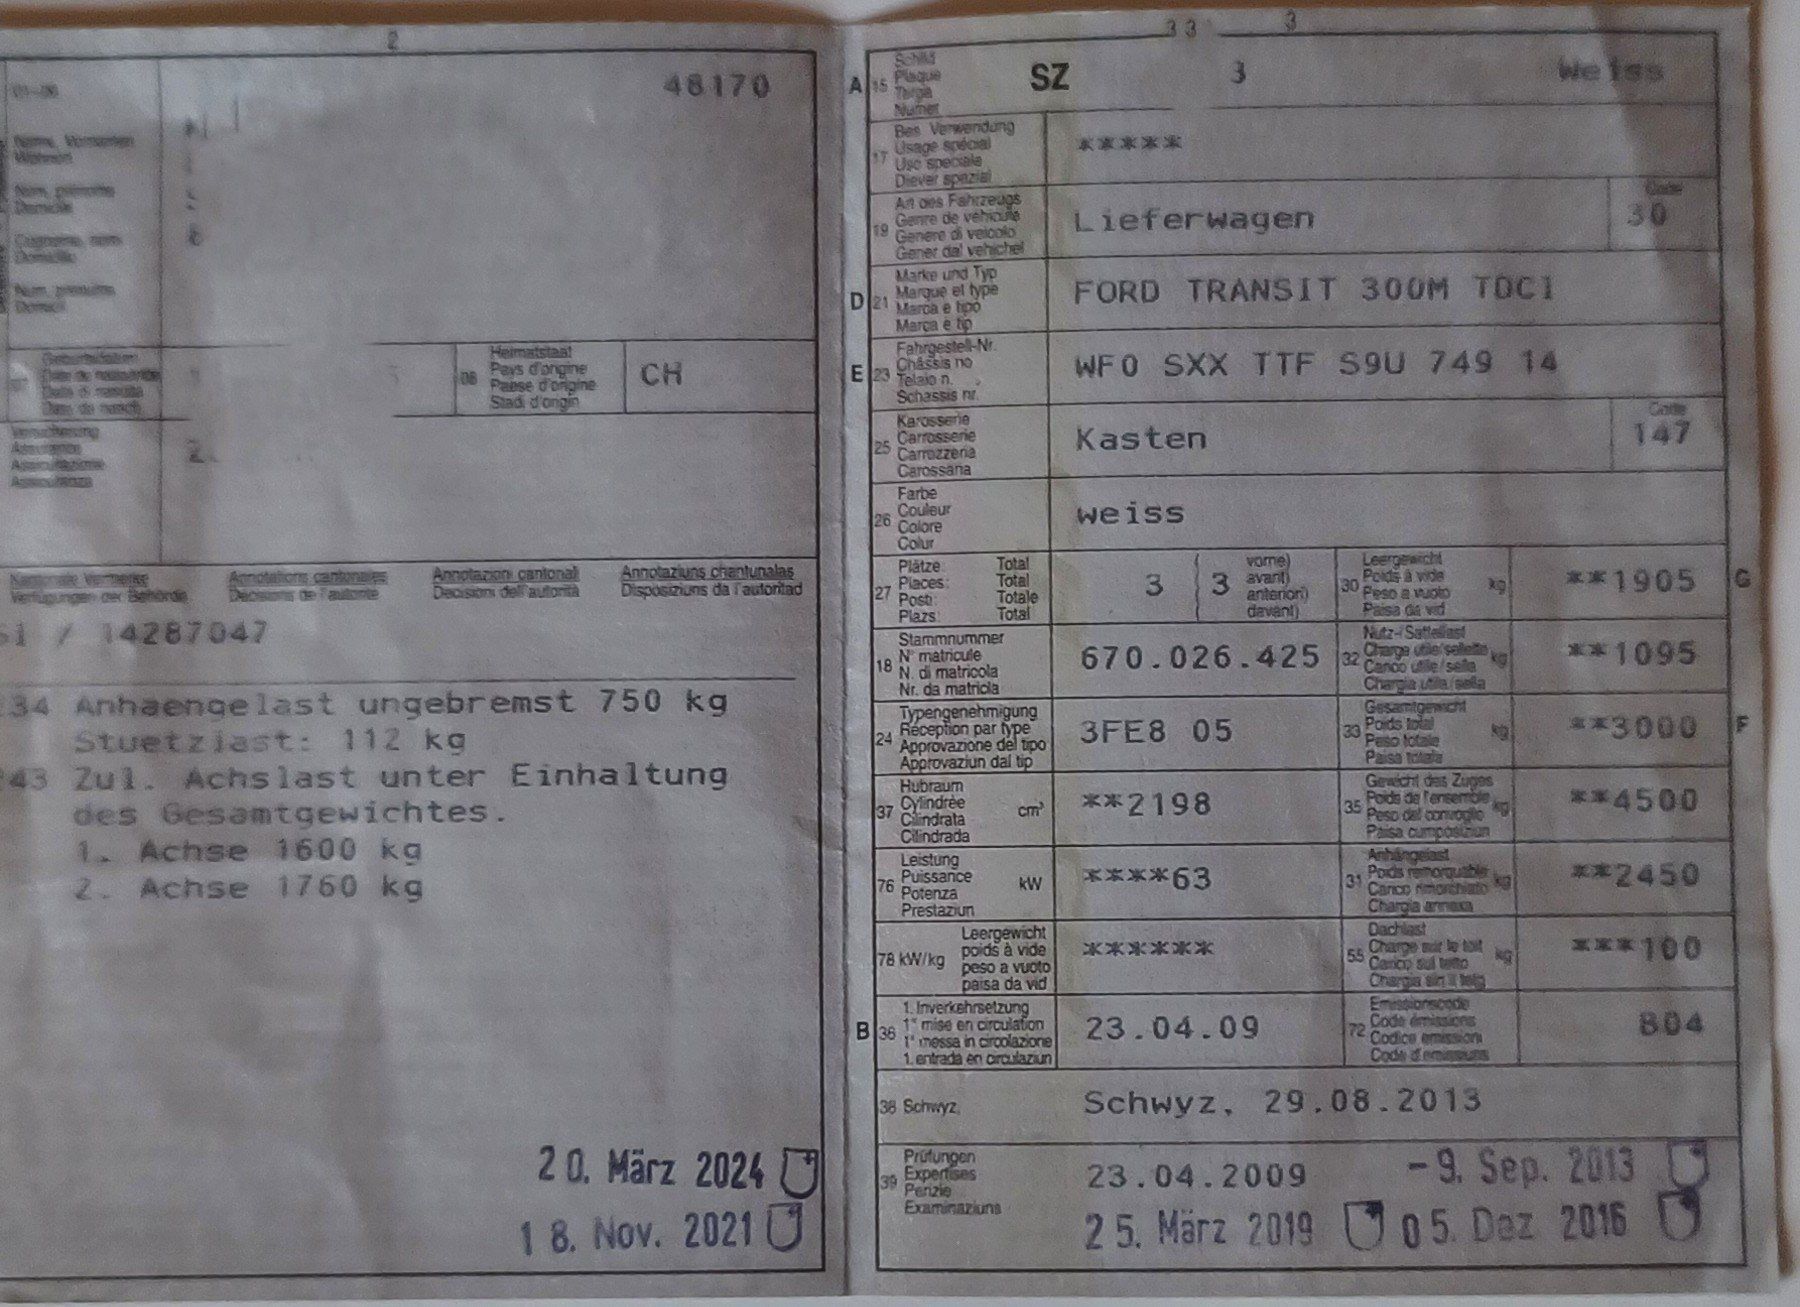 2
48170
Name, Vornamen
Wohnort
Nom, prénoms
Domicile
Cognome, nomi
Domicilio
Num, prenums
Domicil
Geburtsdatum
Date de naissance
Data di nascita
Data da nasch.
08 Heimatstaat
Pays d'origine
Paese d'origine
Stadi d'origin
CH
Versicherung
Assurance
Assicurazione
Assicuranza
2.
Kantonale Vermerke
Verfügungen der Behörde
Annotations cantonales
Décisions de l'autorité
Annotazioni cantonali
Decisioni dell'autorità
Annotaziuns chantunalas
Disposiziuns da l'autoritad
/ 14287047
34 Anhaengelast ungebremst 750 kg
Stuetzlast: 112 kg
43 Zul. Achslast unter Einhaltung
des Gesamtgewichtes.
1. Achse 1600 kg
2. Achse 1760 kg
20. März 2024
18. Nov. 2021
33 3
A 15 Schild
Plaque
Targa
Numer
SZ 3 Weiss
17 Bes. Verwendung
Usage spécial
Uso speciale
Diever spezial
*****
19 Art des Fahrzeugs
Genre de véhicule
Genere di veicolo
Gener dal vehichel
Lieferwagen
Code
30
D 21 Marke und Typ
Marque et type
Marca e tipo
Marca e tip
FORD TRANSIT 300M TDCI
E 23 Fahrgestell-Nr.
Châssis no
Telaio n.
Schassis nr.
WF0 SXX TTF S9U 749 14
25 Karosserie
Carrosserie
Carrozzeria
Carossaria
Kasten
Code
147
26 Farbe
Couleur
Colore
Colur
weiss
27 Plätze: Total
Places: Total
Posti: Totale
Plazs: Total
3 ( 3 vorne)
avant)
anteriori)
davant)
30 Leergewicht
Poids à vide
Peso a vuoto
Paisa da vid
kg
**1905 G
18 Stammnummer
N° matricule
N. di matricola
Nr. da matricla
670.026.425
32 Nutz-/Sattellast
Charge utile/sellette
Carico utile/sella
Chargia utila/sella
kg
**1095
24 Typengenehmigung
Réception par type
Approvazione del tipo
Approvaziun dal tip
3FE8 05
33 Gesamtgewicht
Poids total
Peso totale
Paisa totala
kg
**3000 F
37 Hubraum
Cylindrée
Cilindrata
Cilindrada
cm³
**2198
35 Gewicht des Zuges
Poids de l'ensemble
Peso del convoglio
Paisa cumposiziun
kg
**4500
76 Leistung
Puissance
Potenza
Prestaziun
kW
****63
31 Anhängelast
Poids remorquable
Carico rimorchiato
Chargia annexa
kg
**2450
78 kW/kg Leergewicht
poids à vide
peso a vuoto
paisa da vid
******
55 Dachlast
Charge sur le toit
Carico sul tetto
Chargia sin il tetg
kg
***100
B 36 1. Inverkehrsetzung
1re mise en circulation
1a messa in circolazione
1. entrada en circulaziun
23.04.09
72 Emissionscode
Code émissions
Codice emissioni
Code d'emissiuns
804
38 Schwyz,
Schwyz, 29.08.2013
39 Prüfungen
Expertises
Perizie
Examinaziuns
23.04.2009
-9. Sep. 2013
25. März 2019
05. Dez 2016